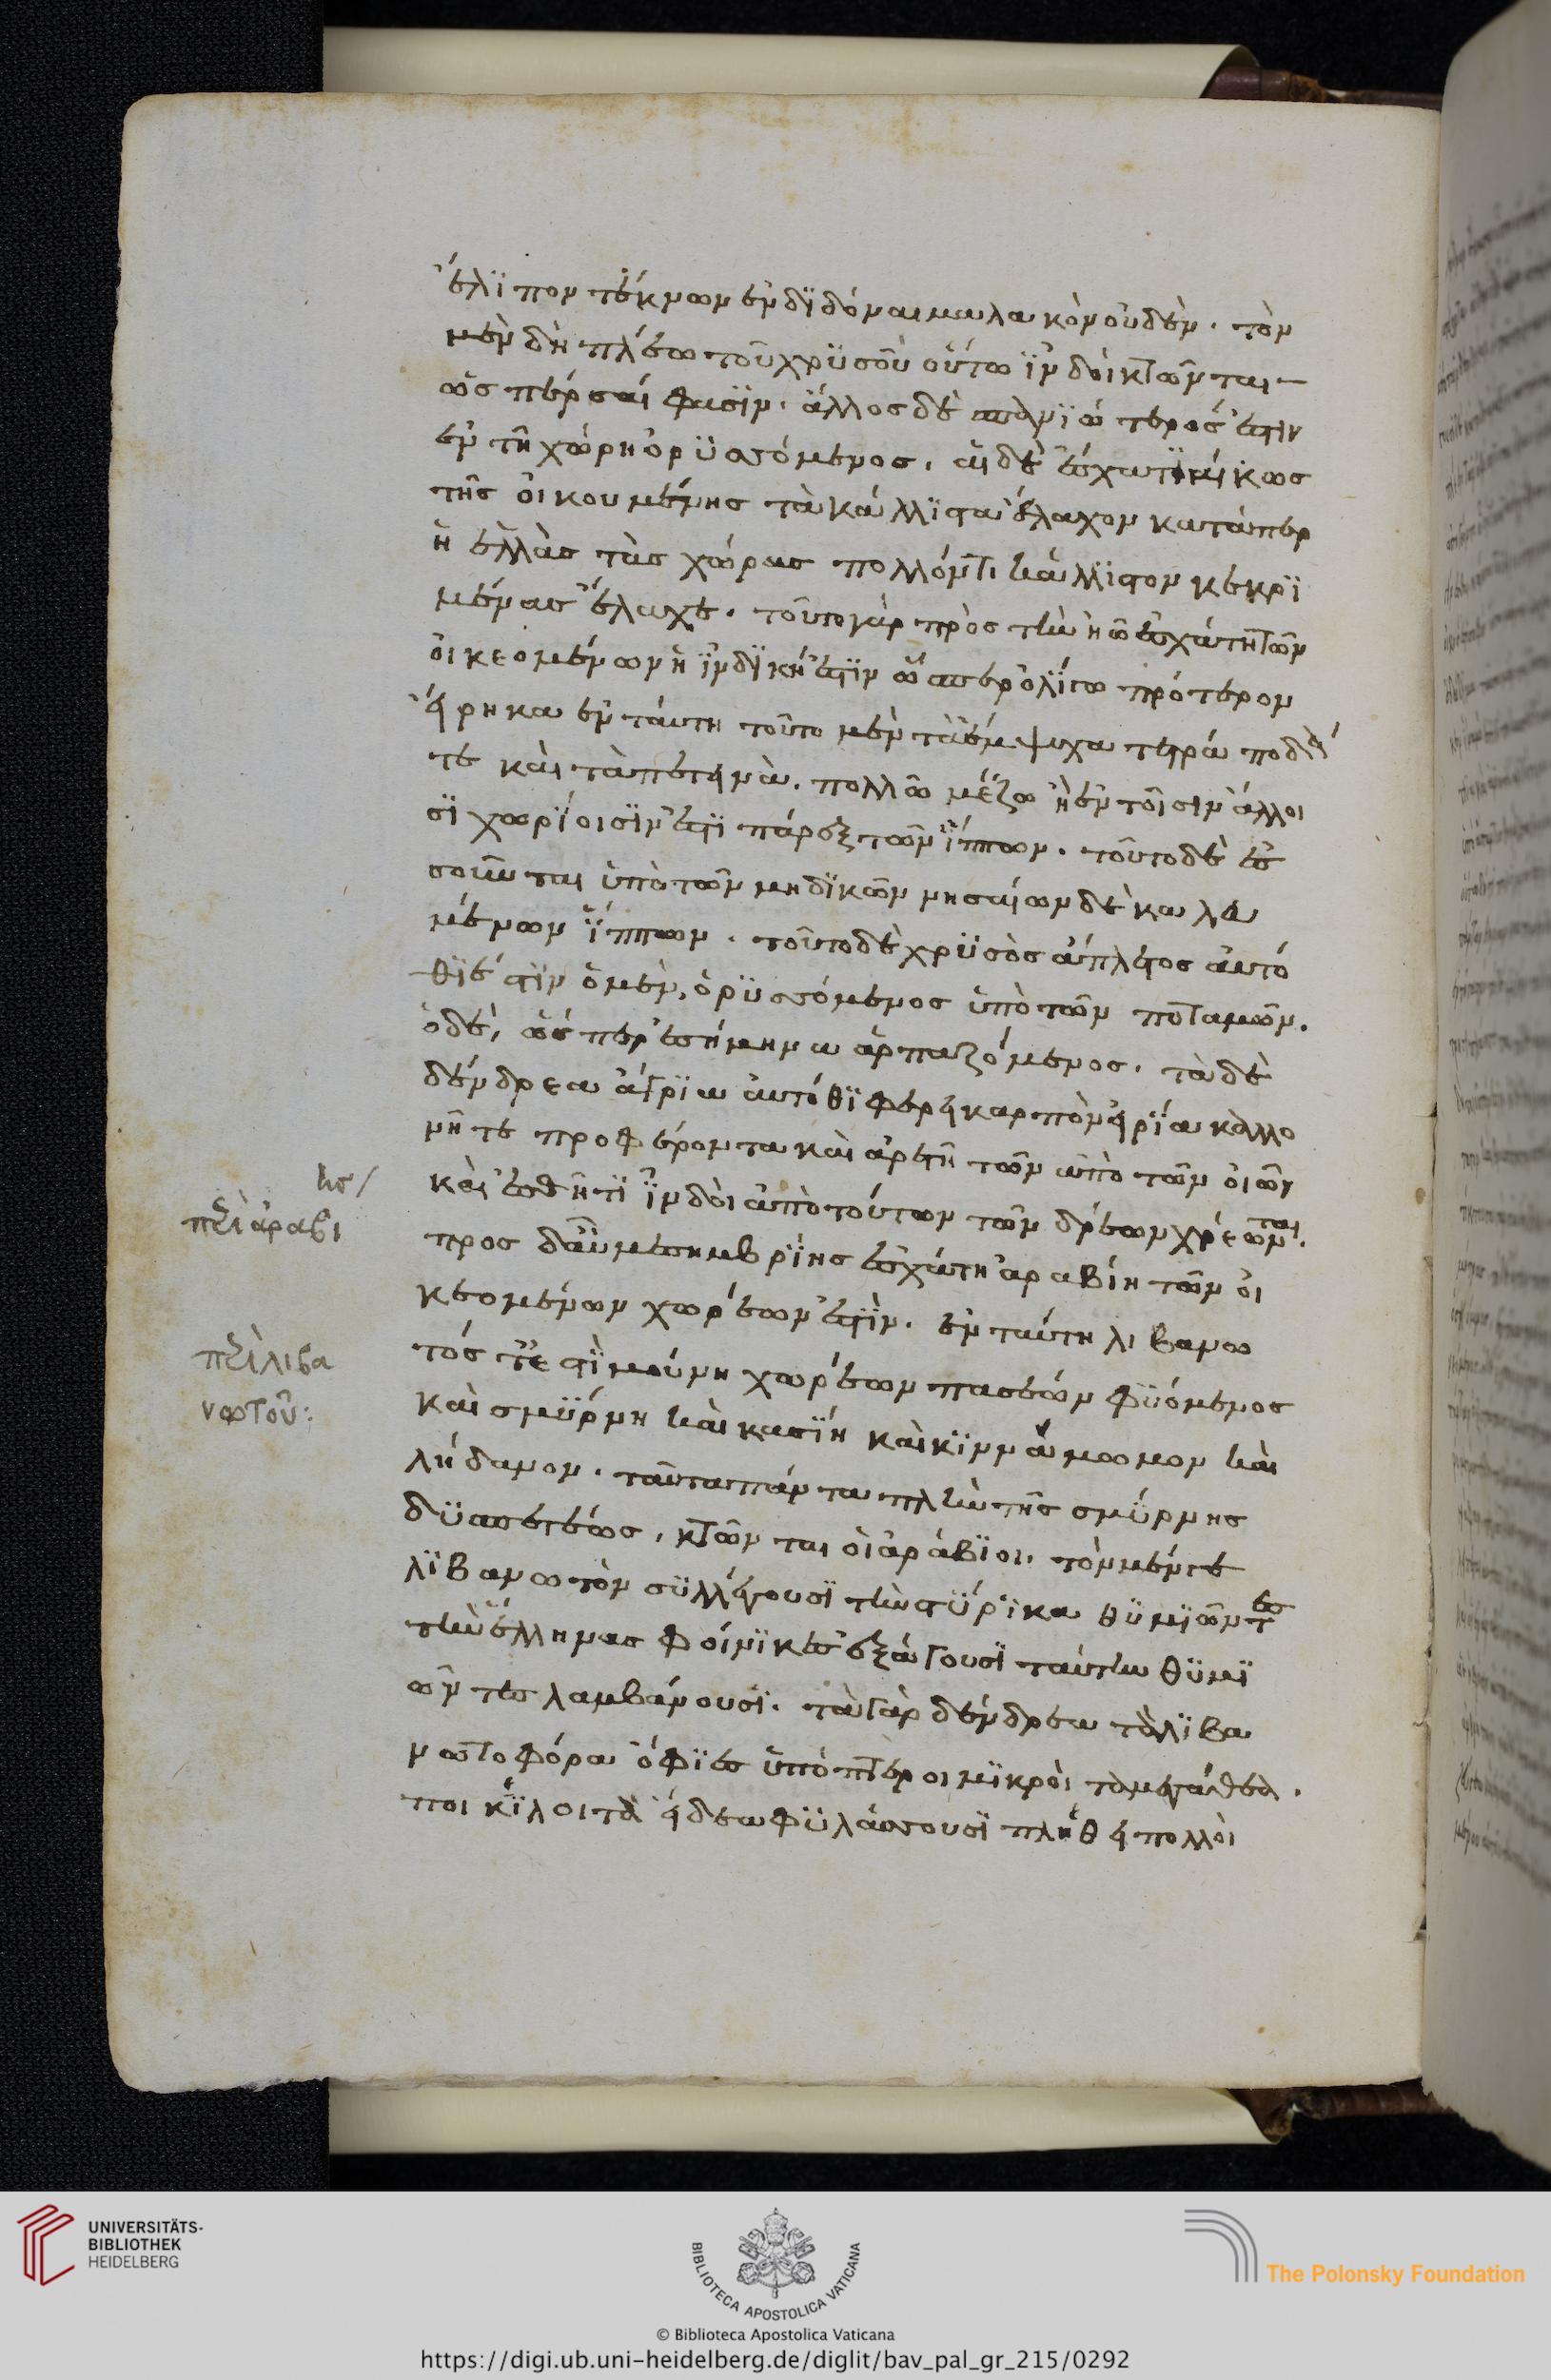 ἔλϊπον τέκνων ἐνδϊδόναι μαλακὸν οὐδέν. τὸν
μὲν δὴ πλέω τοῦ χρϋσοῦ οὕτω ϊνδοὶ κτῶνται
ὡς πέρσαι φασϊν. ἄλλος δὲ σπανϊώτερος ἐστιν
ἐν τῆ χώρη ὀρϋσσόμενος. αἱ δὲ ἐσχατϊαί κως
τῆς οἰκουμένης τὰ κάλλϊστα ἔλαχον κατάπερ
ἡ ἑλλὰς τὰς χώρας πολλόν τι κάλλϊστον κεκρϊ
μένας ἔλαχε. τοῦτο γὰρ πρὸς τὴν ἠῶ ἐσχάτη τῶν
οἰκεομένων ἡ ϊνδϊκή ἐστϊν ὥσπερ ὀλϊγω πρότερον
εἴρηκα ἐν ταύτη τοῦτο μὲν τὰ ἔμψυχα τετράποδά
τε καὶ τὰ πετεινὰ. πολλῶ μέζω ἢ ἐν τοῖσιν ἄλλοι
σϊ χωρϊοισϊν ἐστϊ πάρεξ τῶν ϊππων. τοῦτο δὲ ἑσ
σοῦνται ὑπὸ τῶν μηδϊκῶν νησαίων δὲ καλεʋ
μένων ϊππων. τοῦτο δὲ χρϋσὸς ἄπλετος αὐτό
θϊ ἐστϊν ὁ μὲν, ὀρϋσσόμενος ὑπὸ τῶν ποταμῶν.
ὁ δὲ, ὥσπερ ἐσήμηνα ἁρπαζόμενος. τὰ δὲ
δένδρεα ἄγρϊα αὐτόθϊ φέρει καρπὸν εἰρϊα κάλλο
νῆ τε προφέροντα καὶ ἀρετῆ τῶν ἀπὸ τῶν οἰῶν
καὶ ἐσθῆτϊ ϊνδοὶ ἀπὸ τούτων τῶν δρέων χρέωνται.
πρὸς δ᾽ αὖ μεσημβρϊης ἐσχάτη ἀραβίη τῶν οἰ
κεομένων χωρέων ἐστϊν. ἐν ταύτη λιβανω
τός τέ ἐστϊ μούνη χωρέων πασέων φϋόμενος
καὶ σμϋρνη καὶ κασϊη καὶ κϊννάμωμον καὶ
λήδανον. ταῦτα πάντα πλὴν τῆς σμϋρνης
δϋσπετέως, κτῶνται οἱ ἀράβϊοι. τὸν μέν τε
λϊβανωτὸν σϋλλέγουσϊ τὴν στϋρϊκα θϋμϊῶντες
τὴν ἐς ἕλληνας φοίνϊκες ἐξάγουσϊ ταύτην θϋμϊ
ῶντες λαμβάνουσϊ. τὰ γὰρ δένδρεα τὰ λϊβα
νωτοφόρα ὄφϊες ὑπόπτεροι μϊκροὶ τὰ μεγάθεα.
ποικϊλοι τὰ εἴδεα φϋλάσσουσϊ πλήθει πολλοὶ
περὶ ἀραβι
ης
περὶ λιβα
νωτοῦ:
UNIVERSITÄTS-
BIBLIOTHEK
HEIDELBERG
BIBLIOTECA APOSTOLICA VATICANA
The Polonsky Foundation
© Biblioteca Apostolica Vaticana
https://digi.ub.uni-heidelberg.de/diglit/bav_pal_gr_215/0292